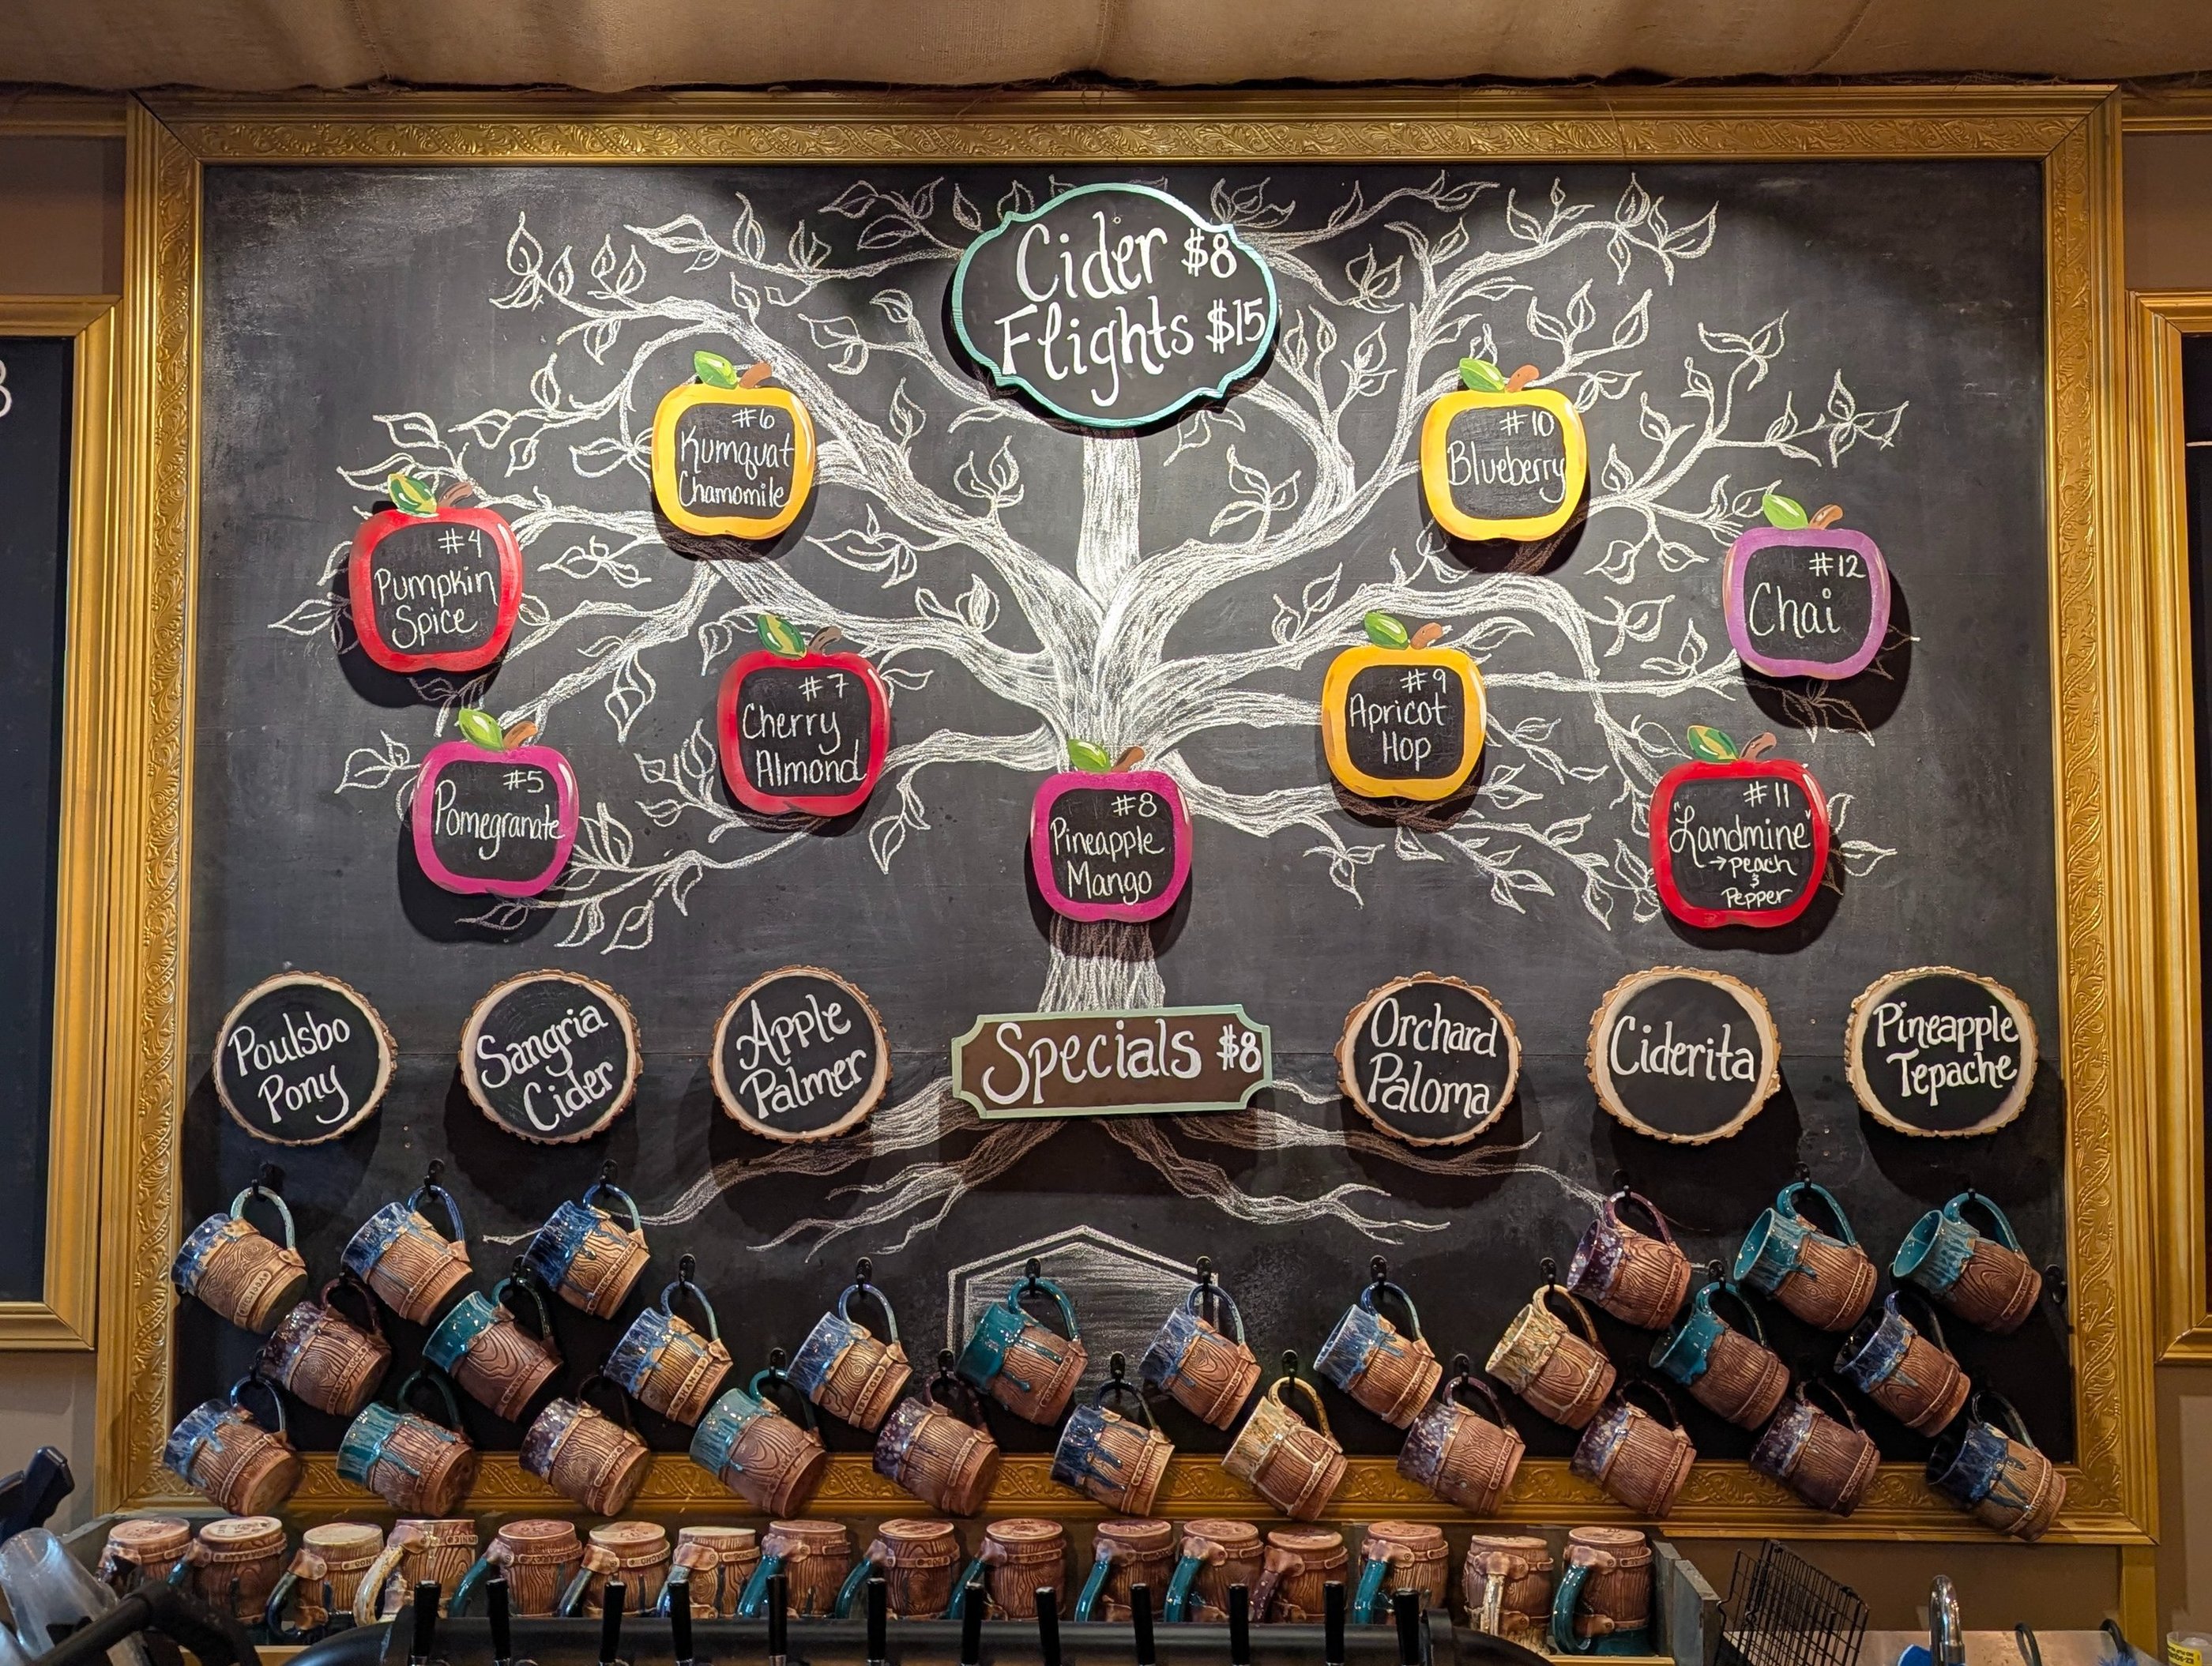 Cider $8
Flights $15
#4
Pumpkin
Spice
#5
Pomegranate
#6
Kumquat
Chamomile
#7
Cherry
Almond
#8
Pineapple
Mango
#9
Apricot
Hop
#10
Blueberry
#11
"Landmine"
→ peach
&
Pepper
#12
Chai
Poulsbo
Pony
Sangria
Cider
Apple
Palmer
Specials $8
Orchard
Paloma
Ciderita
Pineapple
Tepache